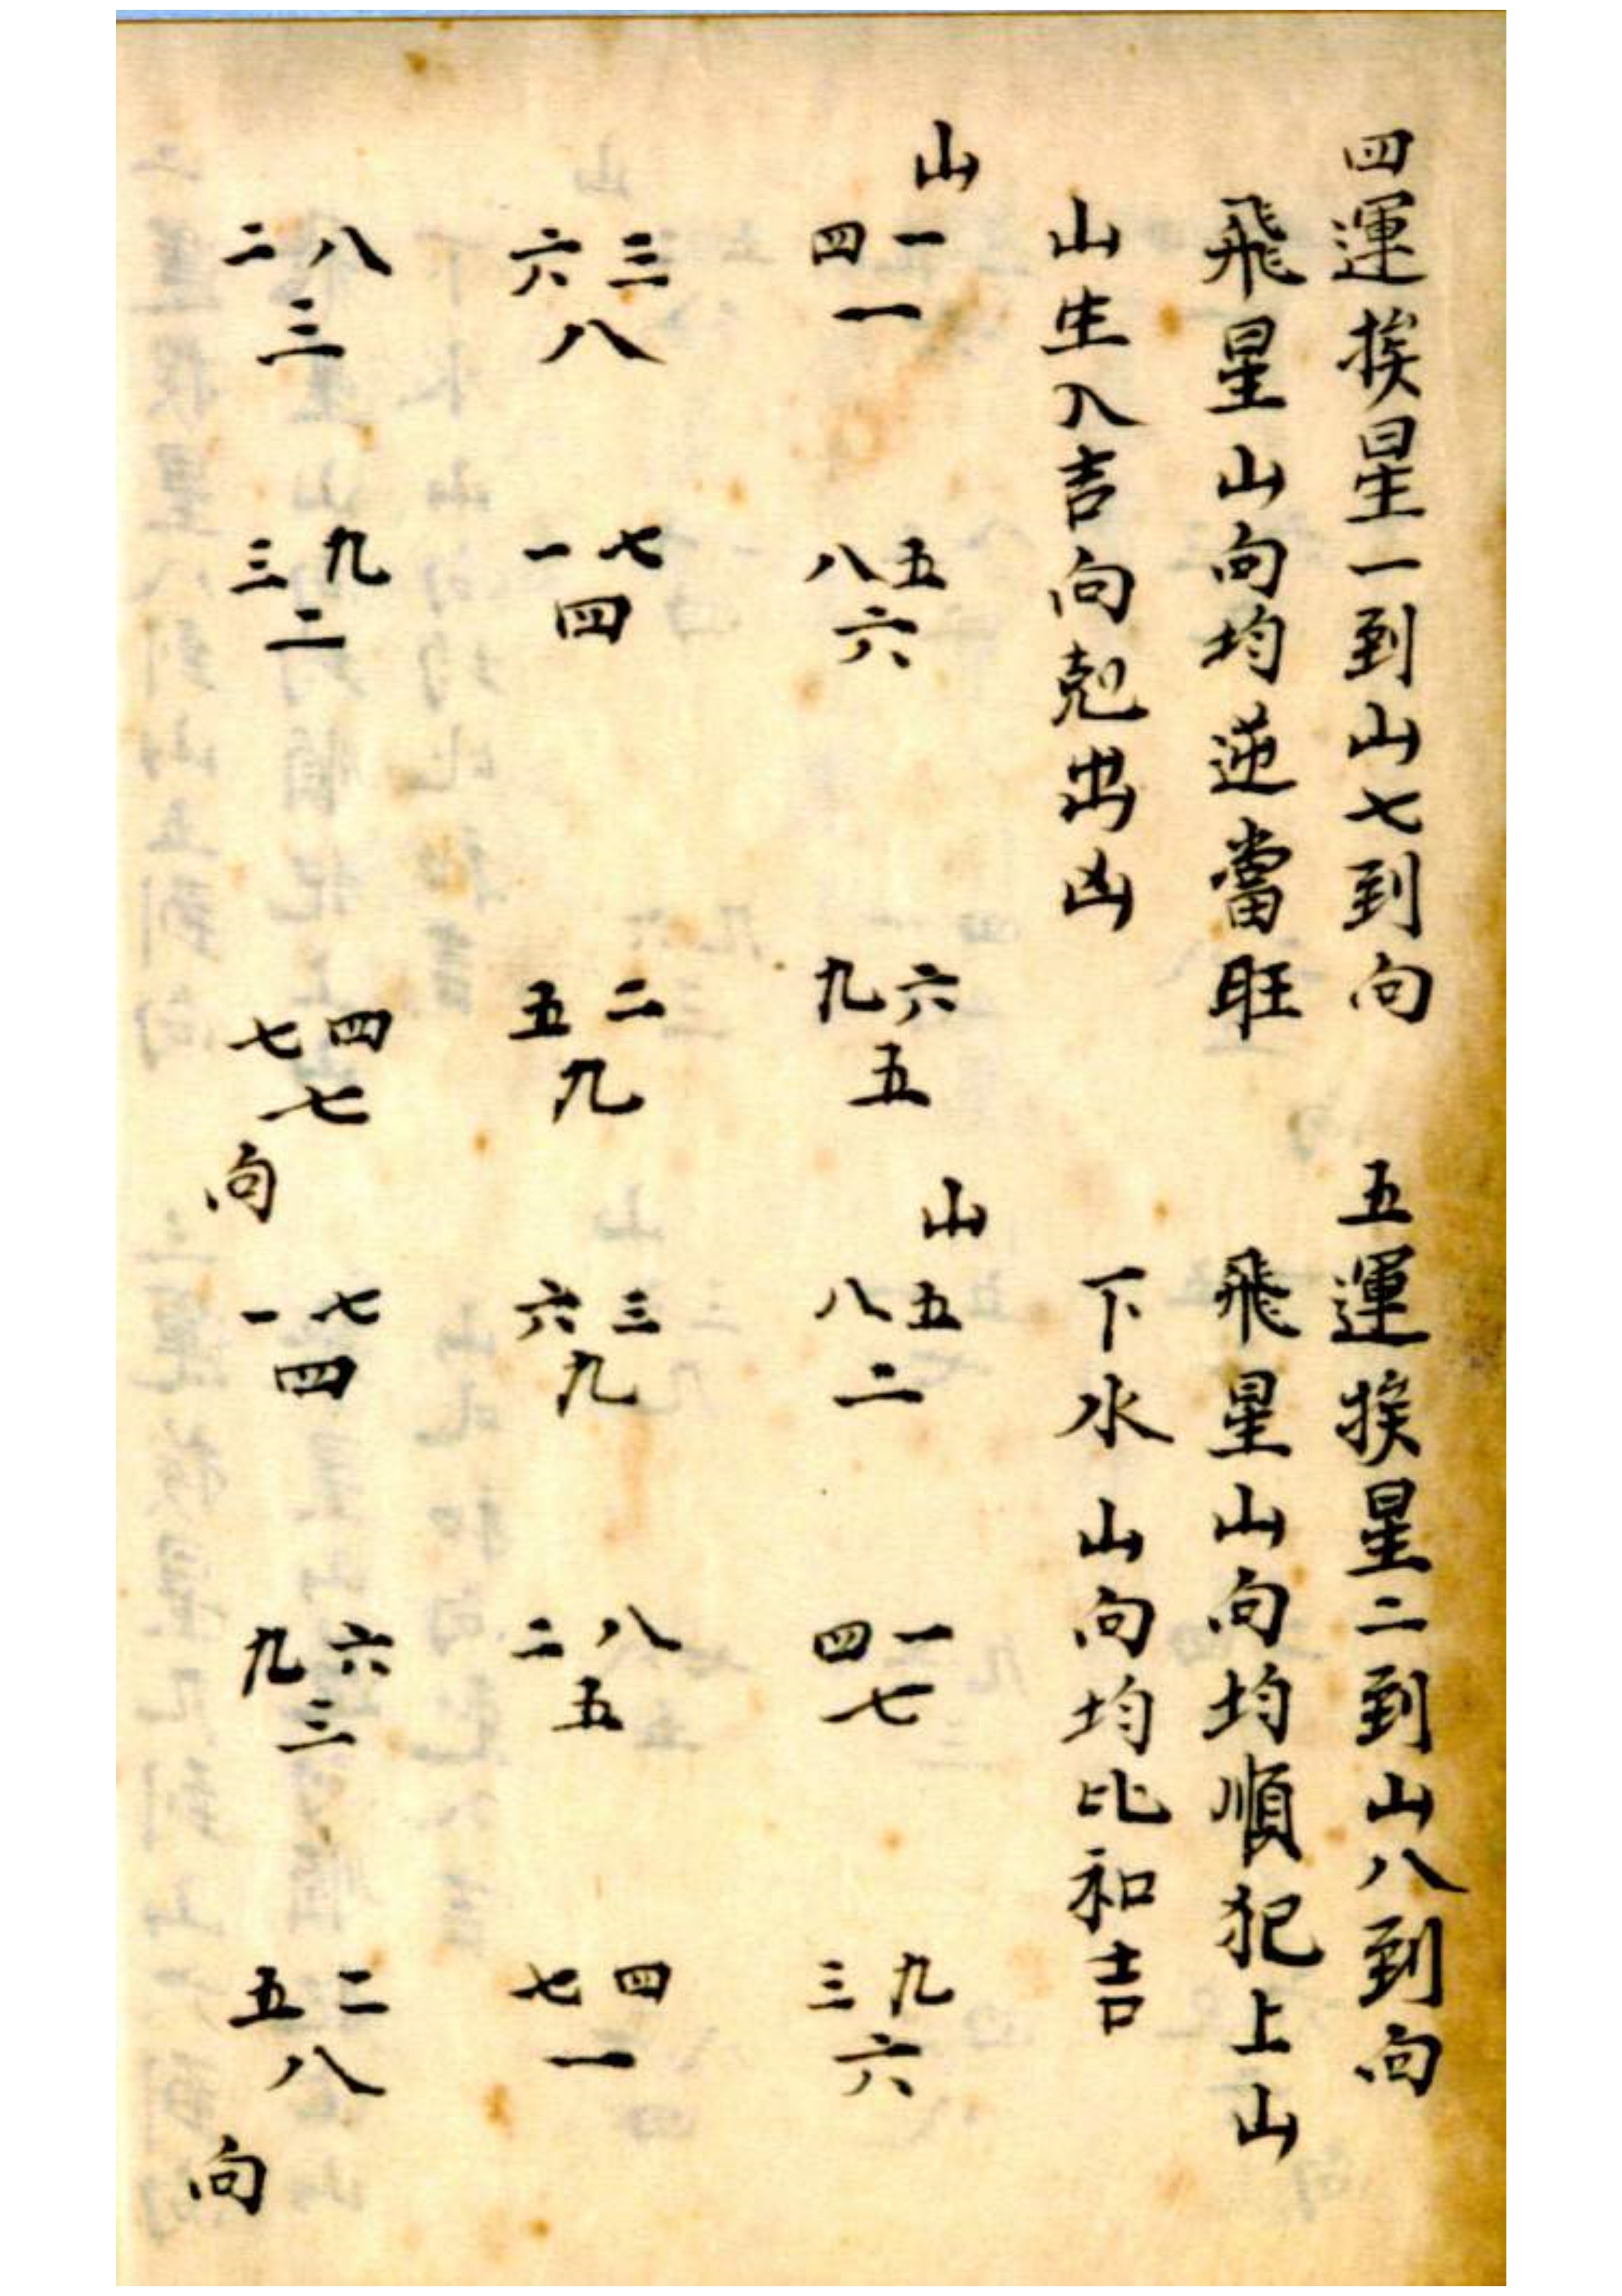 四運挨星一到山七到向
飛星山向均逆當旺
山生入吉向尅出凶
山
四一
一
八五
六
九六
五
六三
八
一七
四
五二
九
二八
三
三九
二
七四
七
向
五運挨星二到山八到向
飛星山向均順犯上山
下水山向均比和吉
山
八五
二
四一
七
三九
六
六三
九
二八
五
七四
一
一七
四
九六
三
五二
八
向